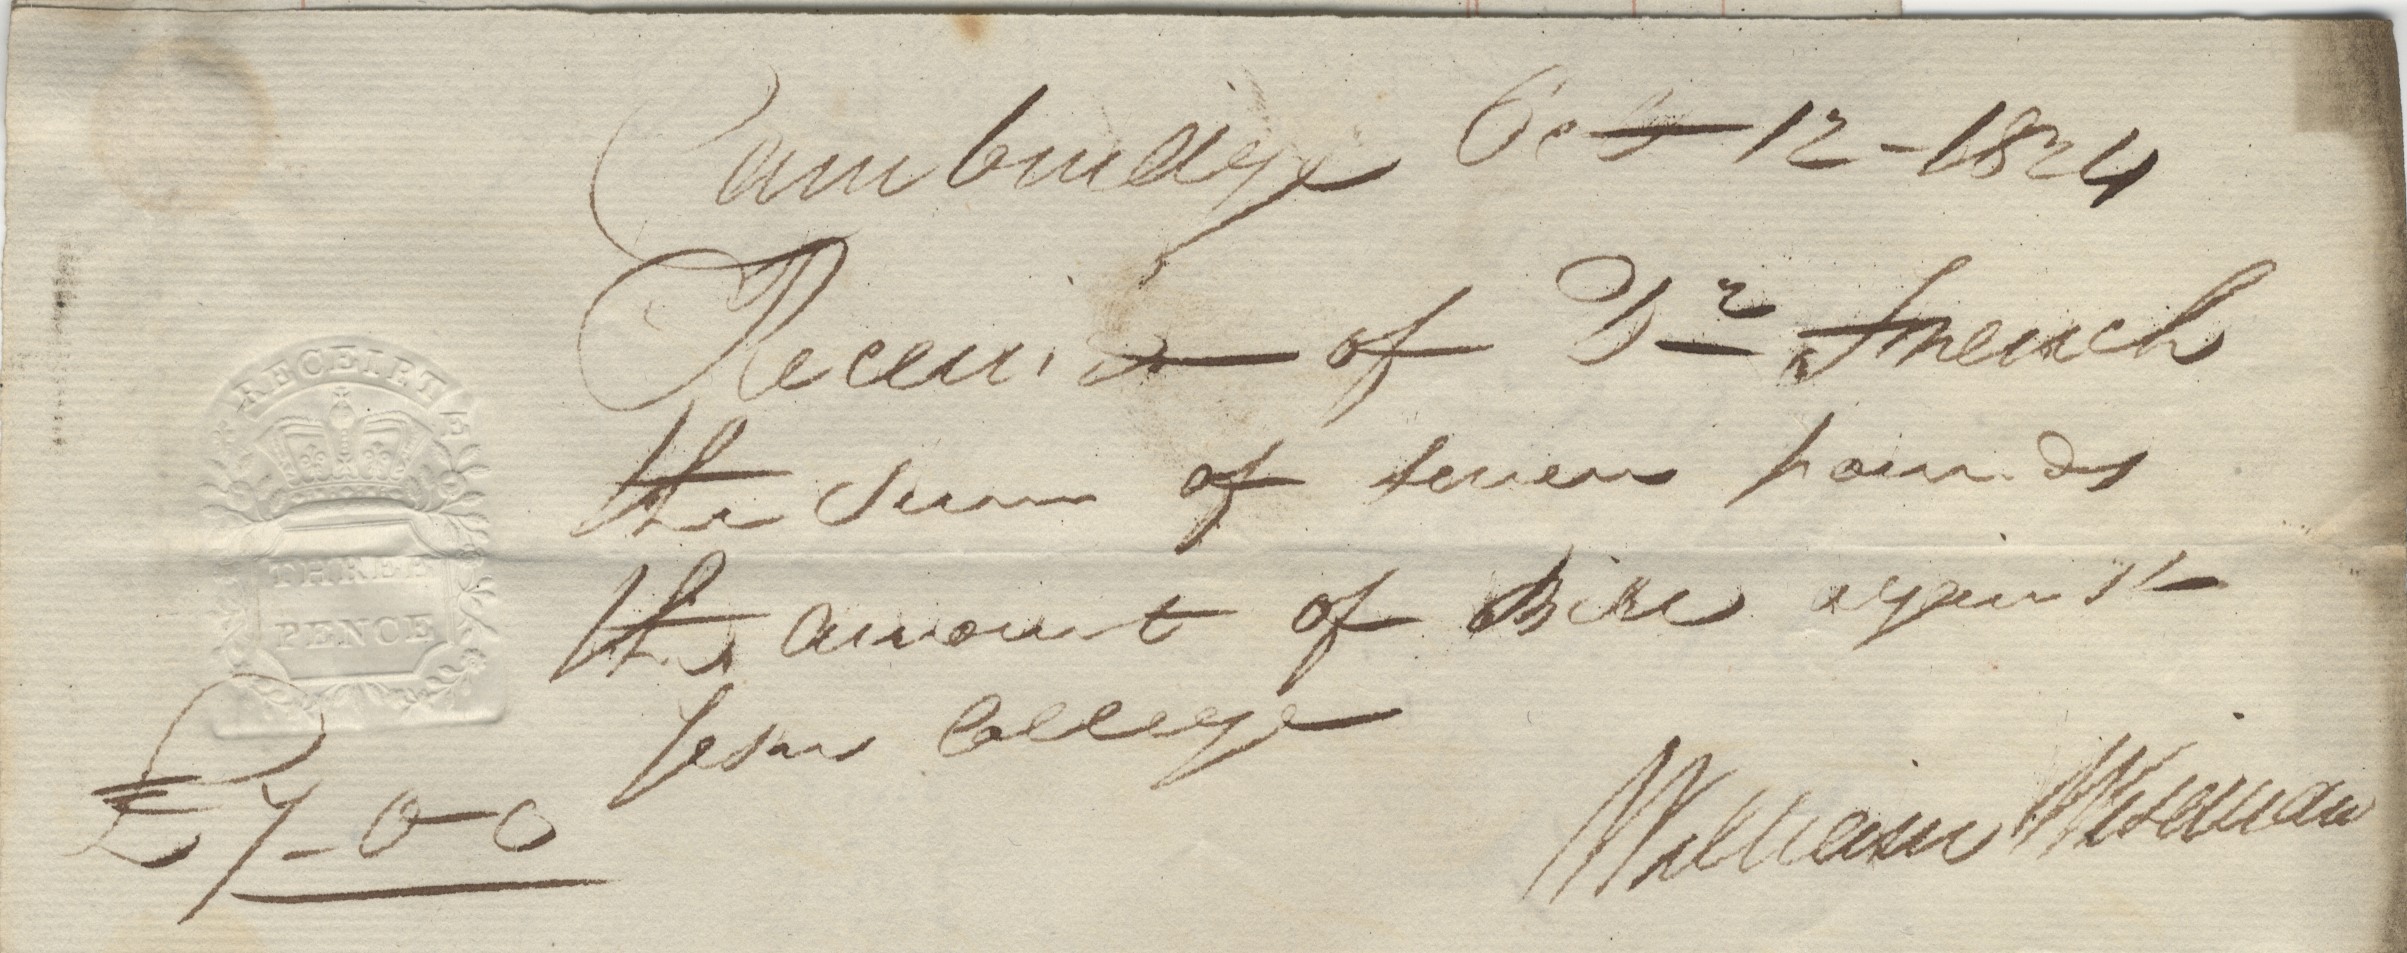 Cambridge Oct 12 - 1824
Received of Dr French
the sum of seven pounds
the amount of Bill against
Jesus College
£7-0-0
William Wiseman
RECEIPTS
THREE
PENCE